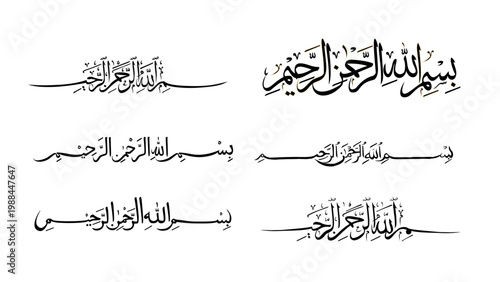 بسم الله الرحمن الرحيم
بِسْمِ اللهِ الرَّحْمٰنِ الرَّحِيْمِ
بِسْمِ اللهِ الرَّحْمٰنِ الرَّحِيْمِ
بسم الله الرحمن الرحيم
بِسْمِ اللهِ الرَّحْمٰنِ الرَّحِيْمِ
بسم الله الرحمن الرحيم
Adobe Stock | #1988447647
Adobe Stock